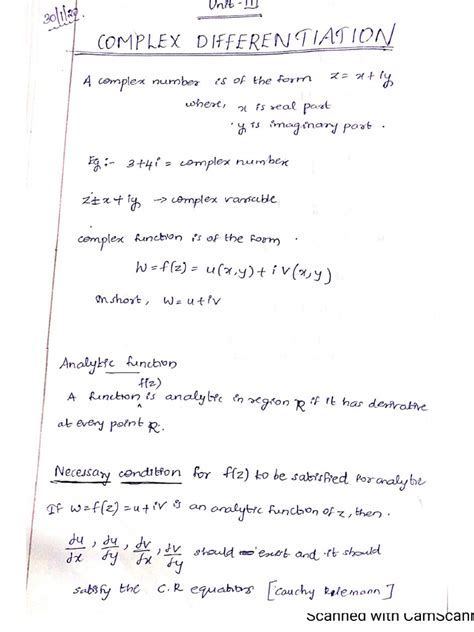 30/1/22
Unit - III
COMPLEX DIFFERENTIATION
A complex number is of the form z = x + iy
where, x is real part
y is imaginary part.
Eg :- 3+4i = complex number
z = x + iy → complex variable
complex function is of the form
W = f(z) = u(x,y) + i v(x,y)
In short, W = u + iv
Analytic function
f(z)
A function ^ is analytic in region R if it has derivative
at every point R.
Necessary condition for f(z) to be satisfied for analytic
If w = f(z) = u + iv is an analytic function of z, then.
∂u/∂x, ∂u/∂y, ∂v/∂x, ∂v/∂y should exist and it should
satisfy the C.R equations [Cauchy Riemann]
Scanned with CamScann